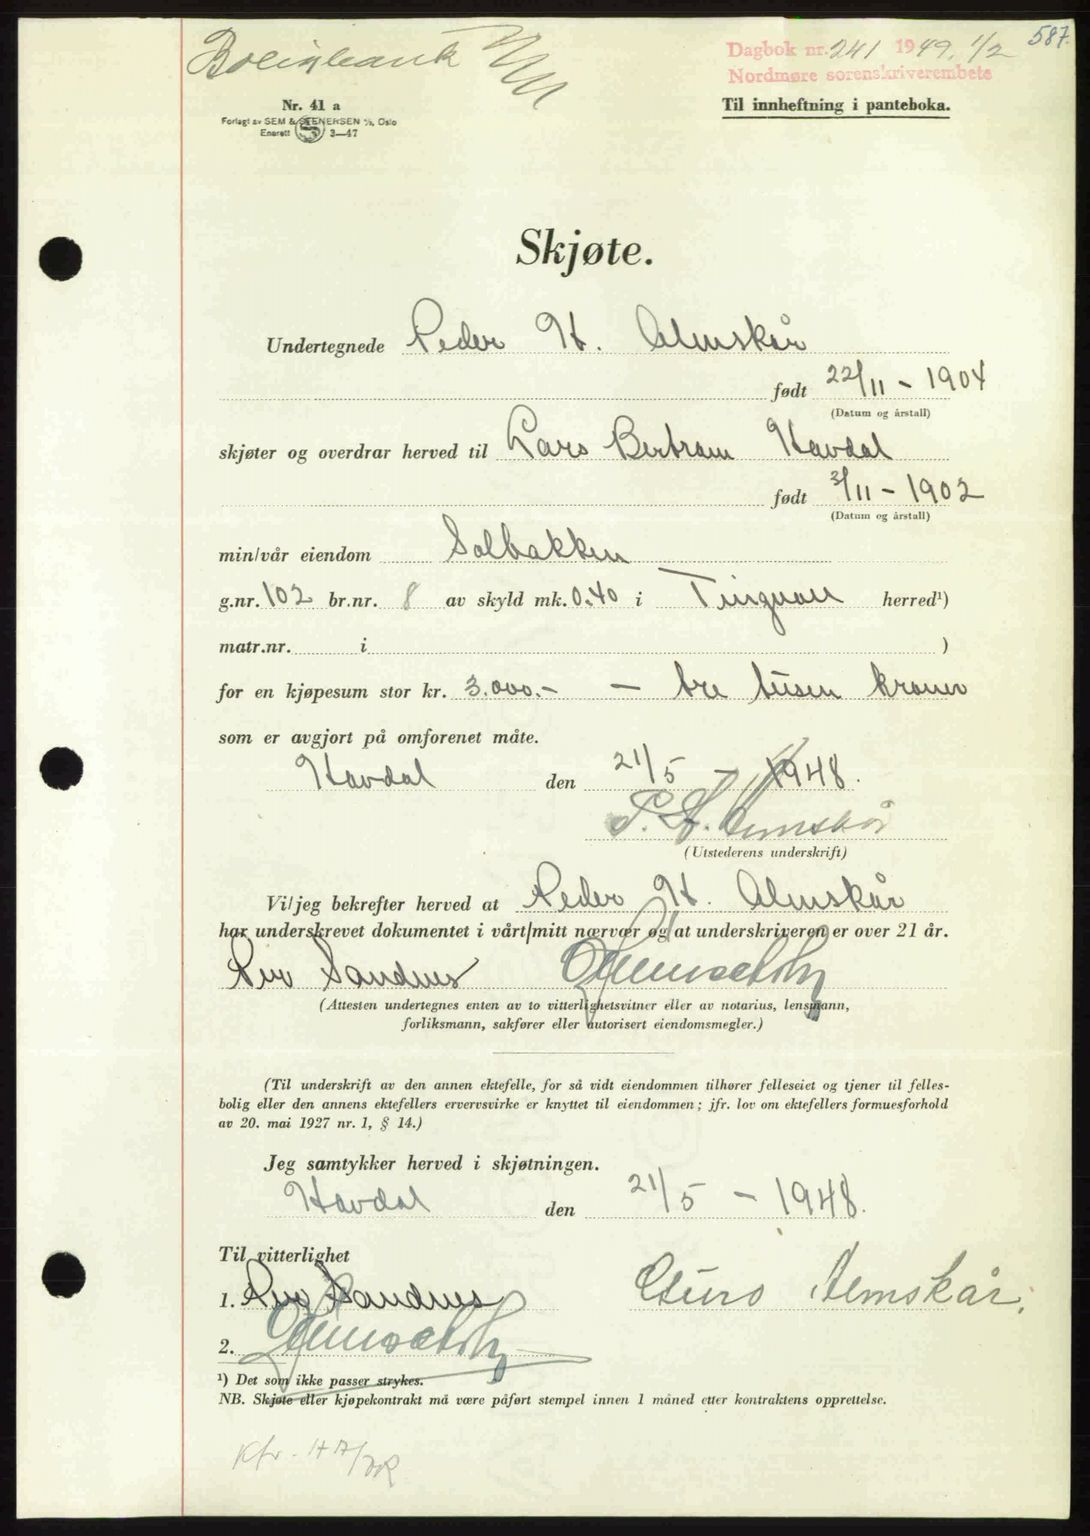 587.
Boligbank
Dagbok nr. 241 1949, 1/2
Nordmøre sorenskriverembete
Nr. 41 a
Til innheftning i panteboka.
Forlagt av SEM & STENERSEN A/S, Oslo
Enerett 3—47
Skjøte.
Undertegnede Peder H. Almskår
født 22/11 - 1904
(Datum og årstall)
skjøter og overdrar herved til Lars Bertram Havdal
født 3/11 - 1902
(Datum og årstall)
min/vår eiendom Solbakken
g.nr. 102 br.nr. 8 av skyld mk. 0.40 i Tingvoll herred¹)
matr.nr. i )
for en kjøpesum stor kr. 3.000.- — tre tusen kroner
som er avgjort på omforenet måte.
Havdal den 21/5 - 1948.
P. H. Almskår
(Utstederens underskrift)
Vi/jeg bekrefter herved at Peder H. Almskår
har underskrevet dokumentet i vårt/mitt nærvær og at underskriveren er over 21 år.
Per Sandnes
(Attesten undertegnes enten av to vitterlighetsvitner eller av notarius, lensmann,
forliksmann, sakfører eller autorisert eiendomsmegler.)
(Til underskrift av den annen ektefelle, for så vidt eiendommen tilhører felleseiet og tjener til felles-
bolig eller den annens ektefellers ervervsvirke er knyttet til eiendommen; jfr. lov om ektefellers formuesforhold
av 20. mai 1927 nr. 1, § 14.)
Jeg samtykker herved i skjøtningen.
Havdal den 21/5 - 1948.
Til vitterlighet
1. Per Sandnes Guro Almskår.
2.
¹) Det som ikke passer strykes.
NB. Skjøte eller kjøpekontrakt må være påført stempel innen 1 måned etter kontraktens opprettelse.